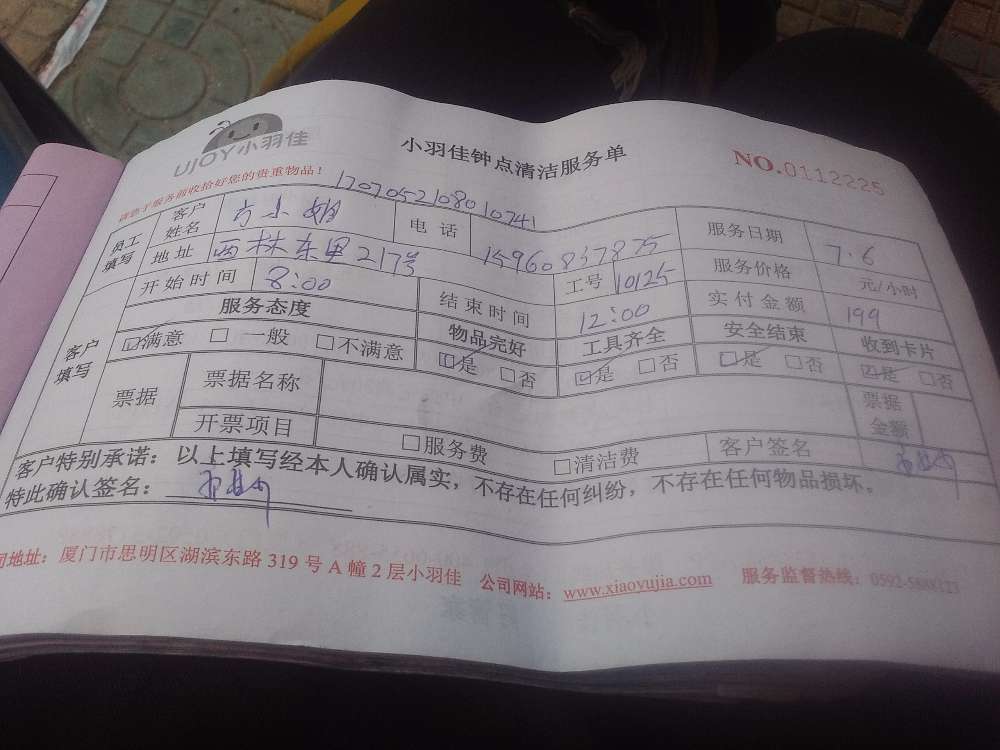 UJOY小羽佳
小羽佳钟点清洁服务单
NO.0112225
请您于服务前收拾好您的贵重物品！
1707052108010741
员工填写 客户姓名 方小姐 电话 15960837875 服务日期 7.6
地址 西林东里217号 工号 10125 服务价格 元/小时
客户填写 开始时间 8:00 结束时间 12:00 实付金额 199
服务态度 物品完好 工具齐全 安全结束 收到卡片
☑满意 □一般 □不满意 ☑是 □否 ☑是 □否 ☑是 □否 ☑是 □否
票据 票据名称 票据金额
开票项目 □服务费 □清洁费 客户签名
客户特别承诺：以上填写经本人确认属实，不存在任何纠纷，不存在任何物品损坏。
特此确认签名：
司地址：厦门市思明区湖滨东路319号A幢2层小羽佳 公司网站：www.xiaoyujia.com 服务监督热线：